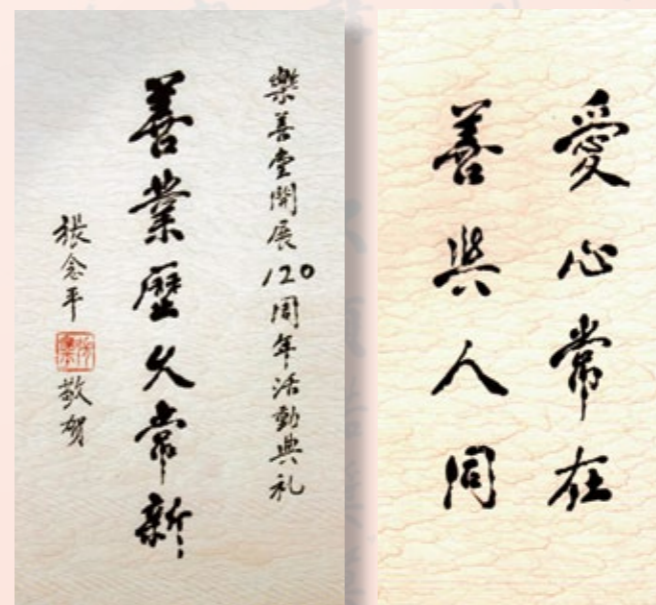 樂善堂開展120周年活動典礼
善業歷久常新
張念平
敬贺
愛心常在
善與人同